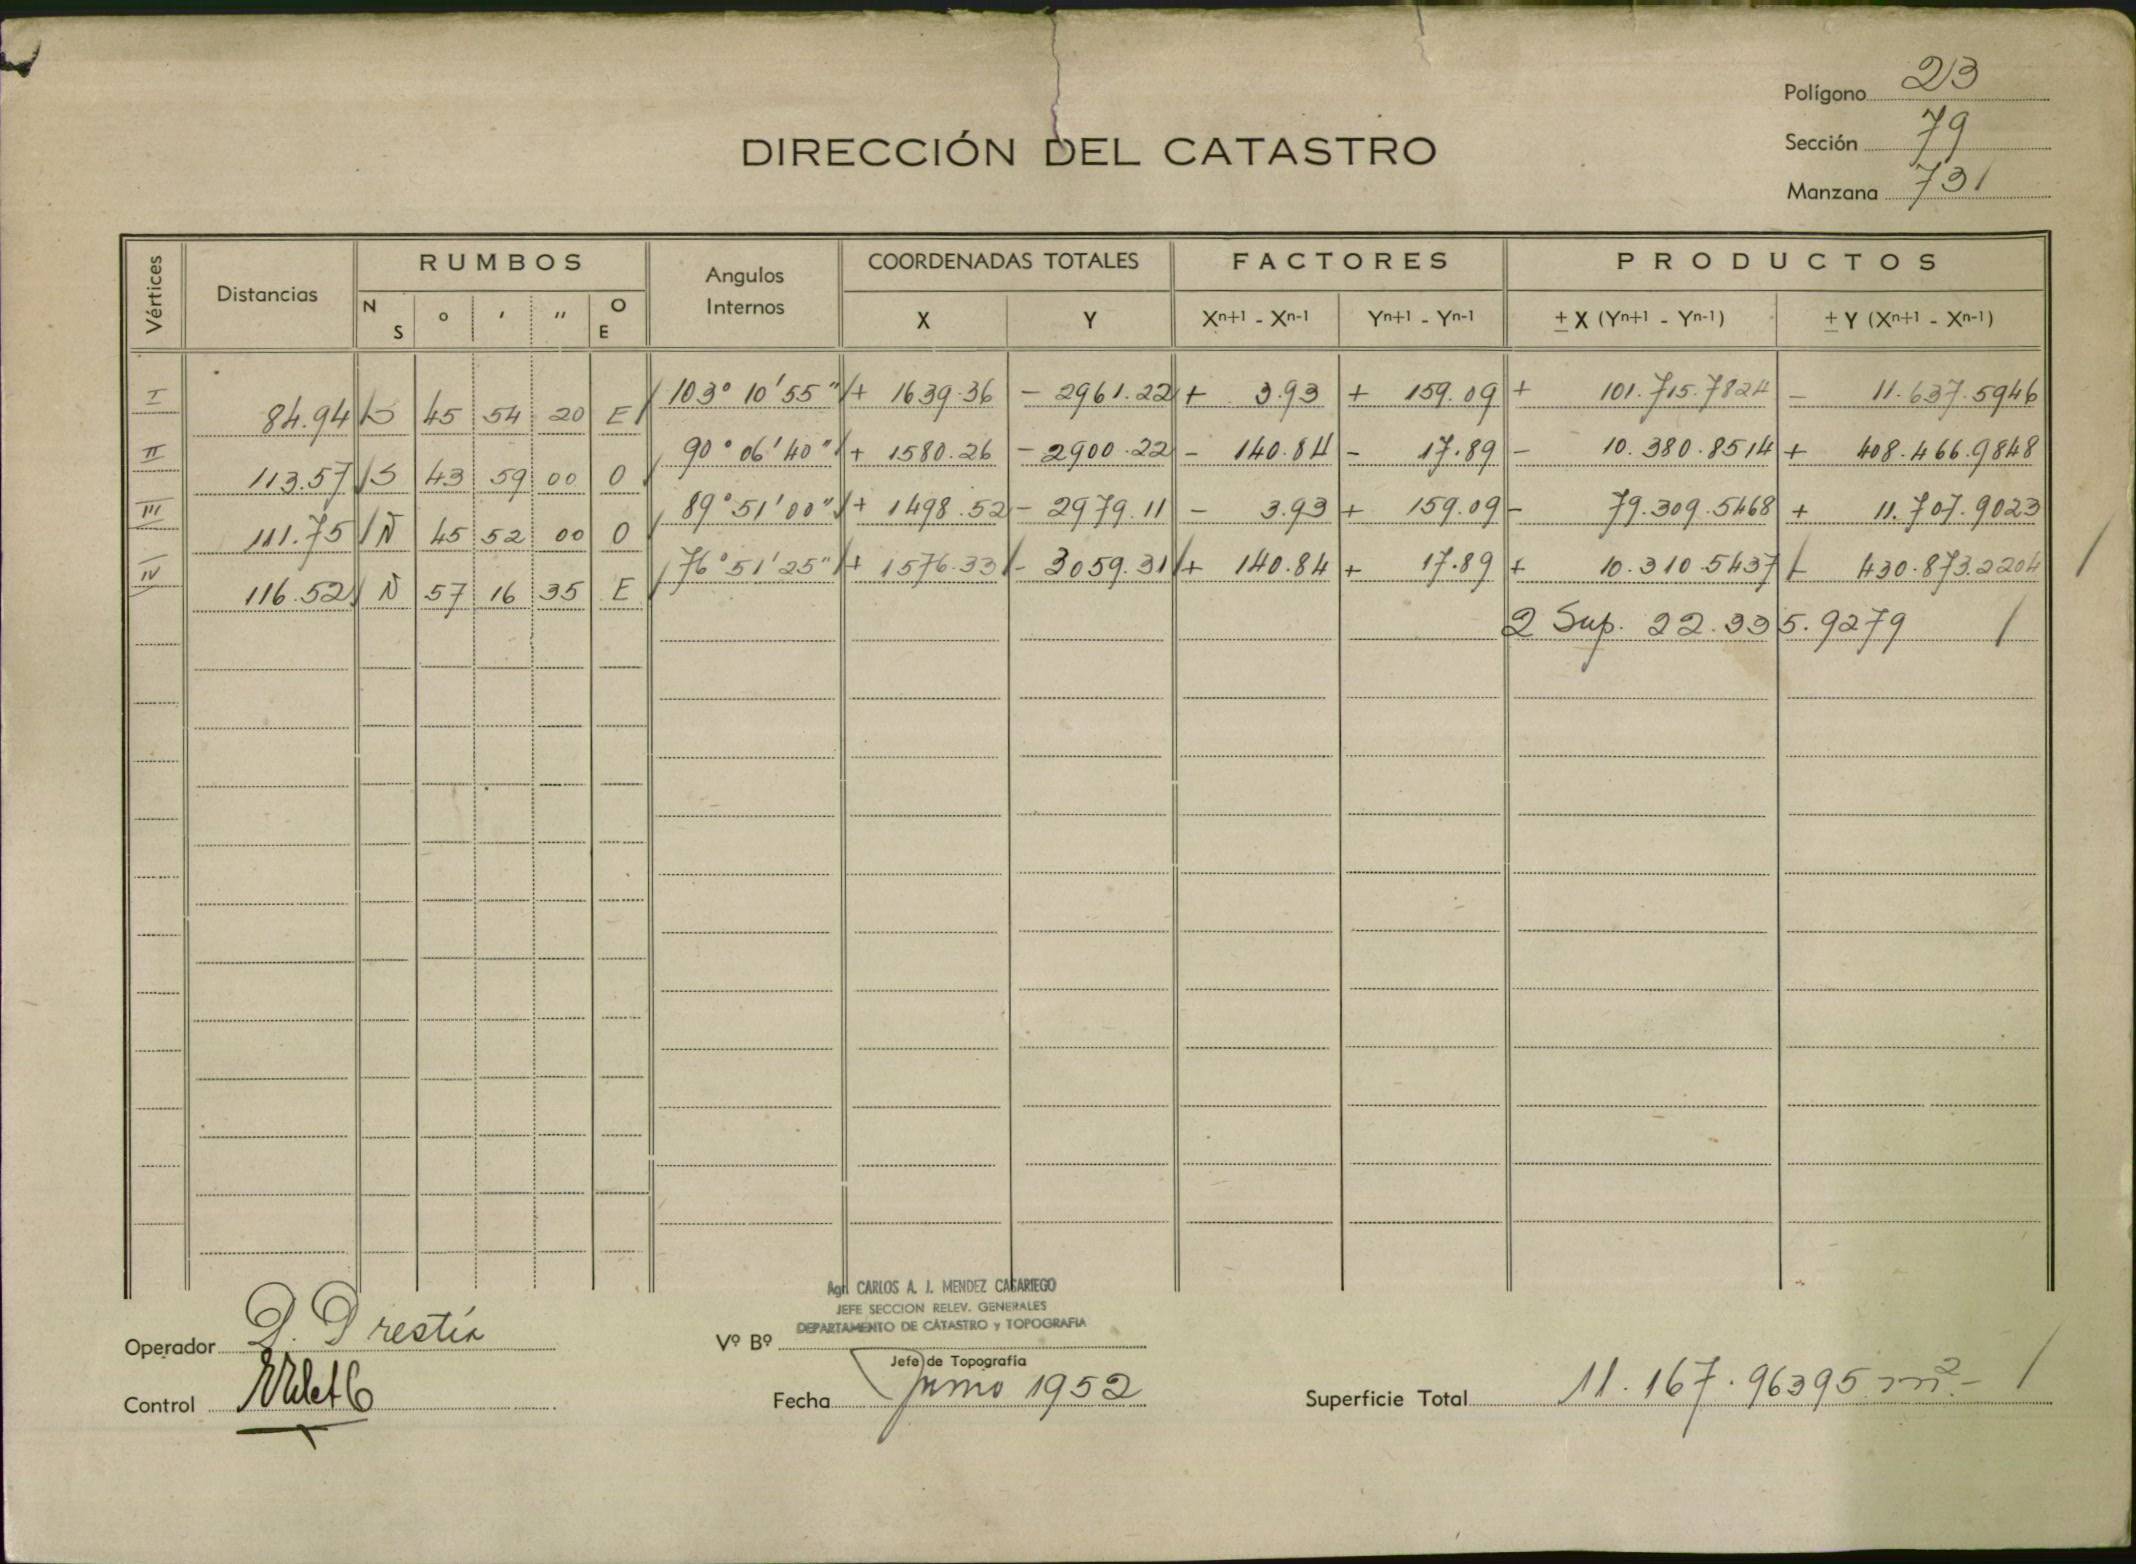 Polígono 23
DIRECCIÓN DEL CATASTRO
Sección 79
Manzana 731
Vértices Distancias RUMBOS Angulos Internos COORDENADAS TOTALES FACTORES PRODUCTOS
N S ° ' " O E X Y Xn+1 - Xn-1 Yn+1 - Yn-1 ± X (Yn+1 - Yn-1) ± Y (Xn+1 - Xn-1)
I 103° 10' 55" + 1639.36 - 2961.22 + 3.93 + 159.09 + 101.715.7824 - 11.637.5946
84.94 S 45 54 20 E
II 90° 06' 40" + 1580.26 - 2900.22 - 140.84 - 17.89 - 10.380.8514 + 408.466.9848
113.57 S 43 59 00 O
III 89° 51' 00" + 1498.52 - 2979.11 - 3.93 + 159.09 - 79.309.5468 + 11.707.9023
111.75 N 45 52 00 O
IV 76° 51' 25" + 1576.33 - 3059.31 + 140.84 + 17.89 + 10.310.5437 - 430.873.2204
116.52 N 57 16 35 E
2 Sup. 22.335.9279
Agr. CARLOS A. J. MENDEZ CASARIEGO
JEFE SECCION RELEV. GENERALES
DEPARTAMENTO DE CATASTRO y TOPOGRAFIA
Operador D. Drestía
Vº Bº
Jefe de Topografía
Control
Fecha Junio 1952
Superficie Total 11.167.96395 m².-